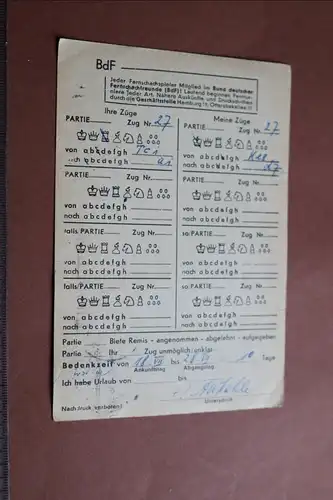 BdF
Jeder Fernschachspieler Mitglied im Bund deutscher
Fernschachfreunde (BdF)! Laufend beginnen Fernturniere
jeder Art. Nähere Auskünfte und Drucksachen
durch die Geschäftsstelle Hamburg
Ihre Züge Meine Züge
PARTIE Zug Nr. 27 PARTIE Zug Nr. 27
von abcdefgh Tc1 von abcdefgh
nach abcdefgh a1 nach abcdefgh
PARTIE Zug Nr. PARTIE Zug Nr.
von abcdefgh von abcdefgh
nach abcdefgh nach abcdefgh
falls PARTIE Zug Nr. so PARTIE Zug Nr.
von abcdefgh von abcdefgh
nach abcdefgh nach abcdefgh
falls PARTIE Zug Nr. so PARTIE Zug Nr.
von abcdefgh von abcdefgh
nach abcdefgh nach abcdefgh
Partie Biete Remis - angenommen - abgelehnt - aufgegeben
Partie Ihr Zug unmöglich: unklar
Bedenkzeit von bis Tage
Ankunftstag Abgangstag
Ich habe Urlaub von bis
Nachdruck verboten! Unterschrift